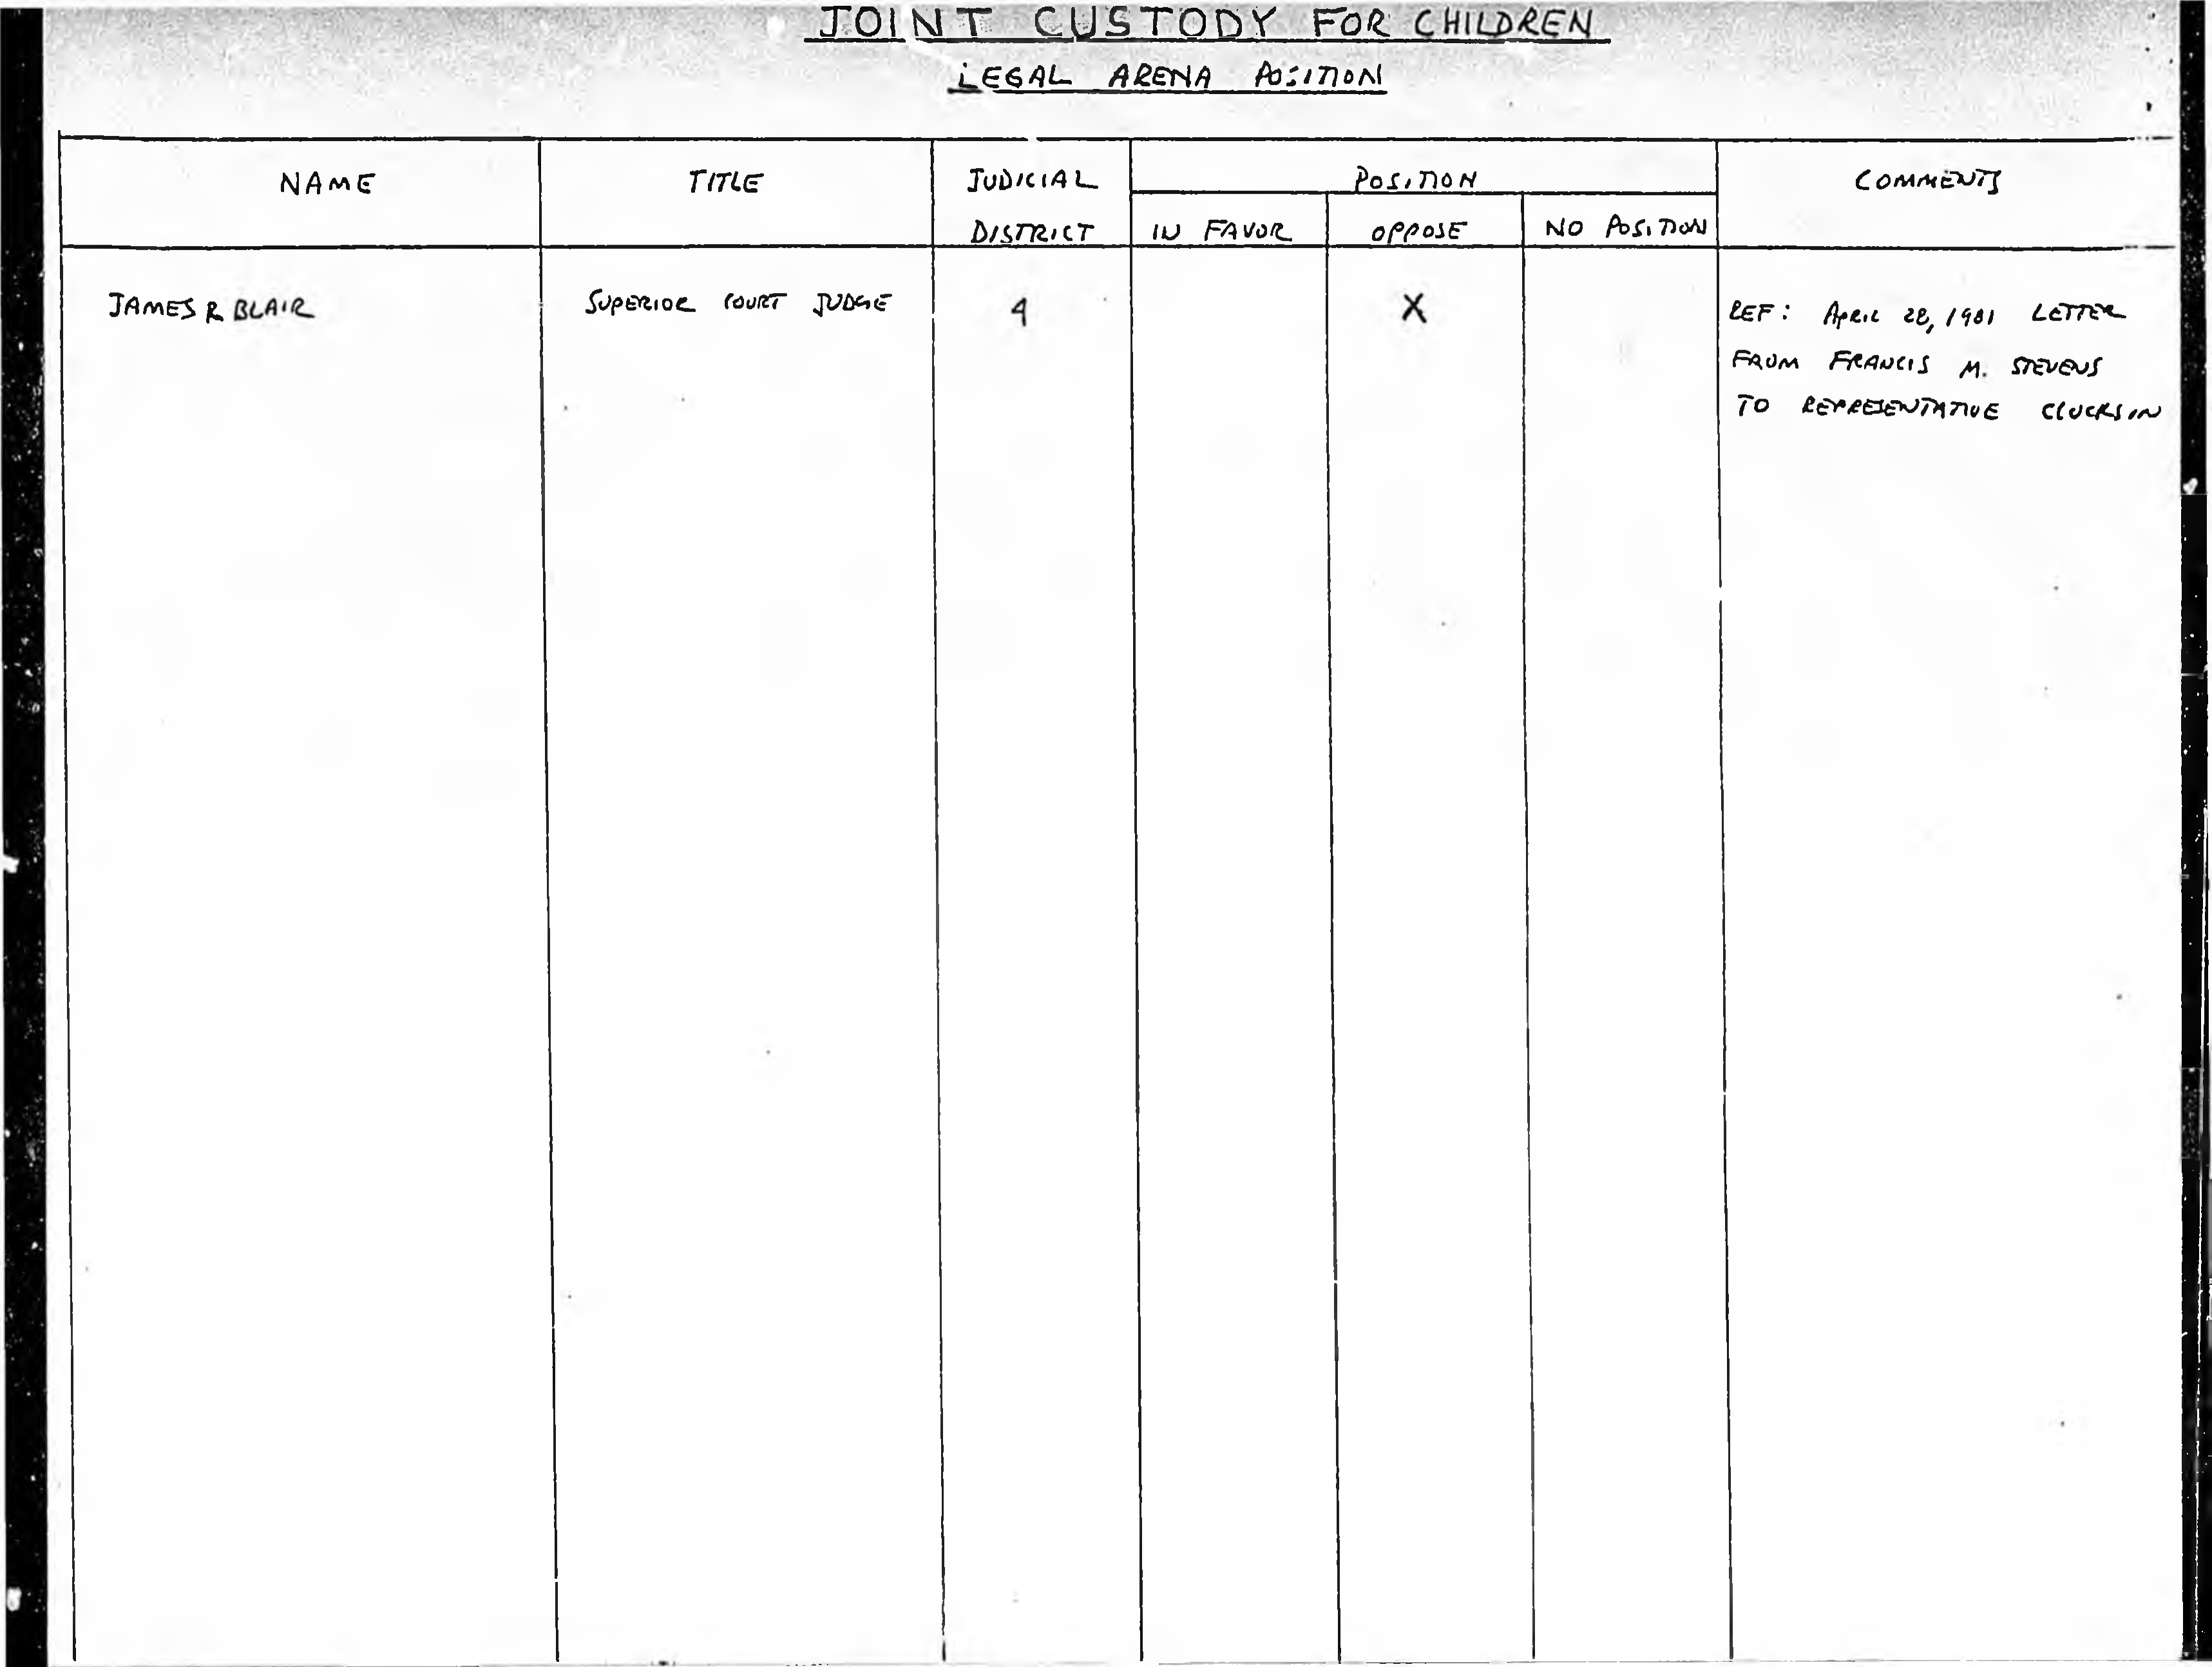 JOINT CUSTODY FOR CHILDREN
LEGAL ARENA POSITION
NAME TITLE JUDICIAL DISTRICT POSITION COMMENTS
IN FAVOR OPPOSE NO POSITION
JAMES R BLAIR SUPERIOR COURT JUDGE 4 X REF: APRIL 28, 1981 LETTER
FROM FRANCIS M. STEVENS
TO REPRESENTATIVE CLOCKSIN